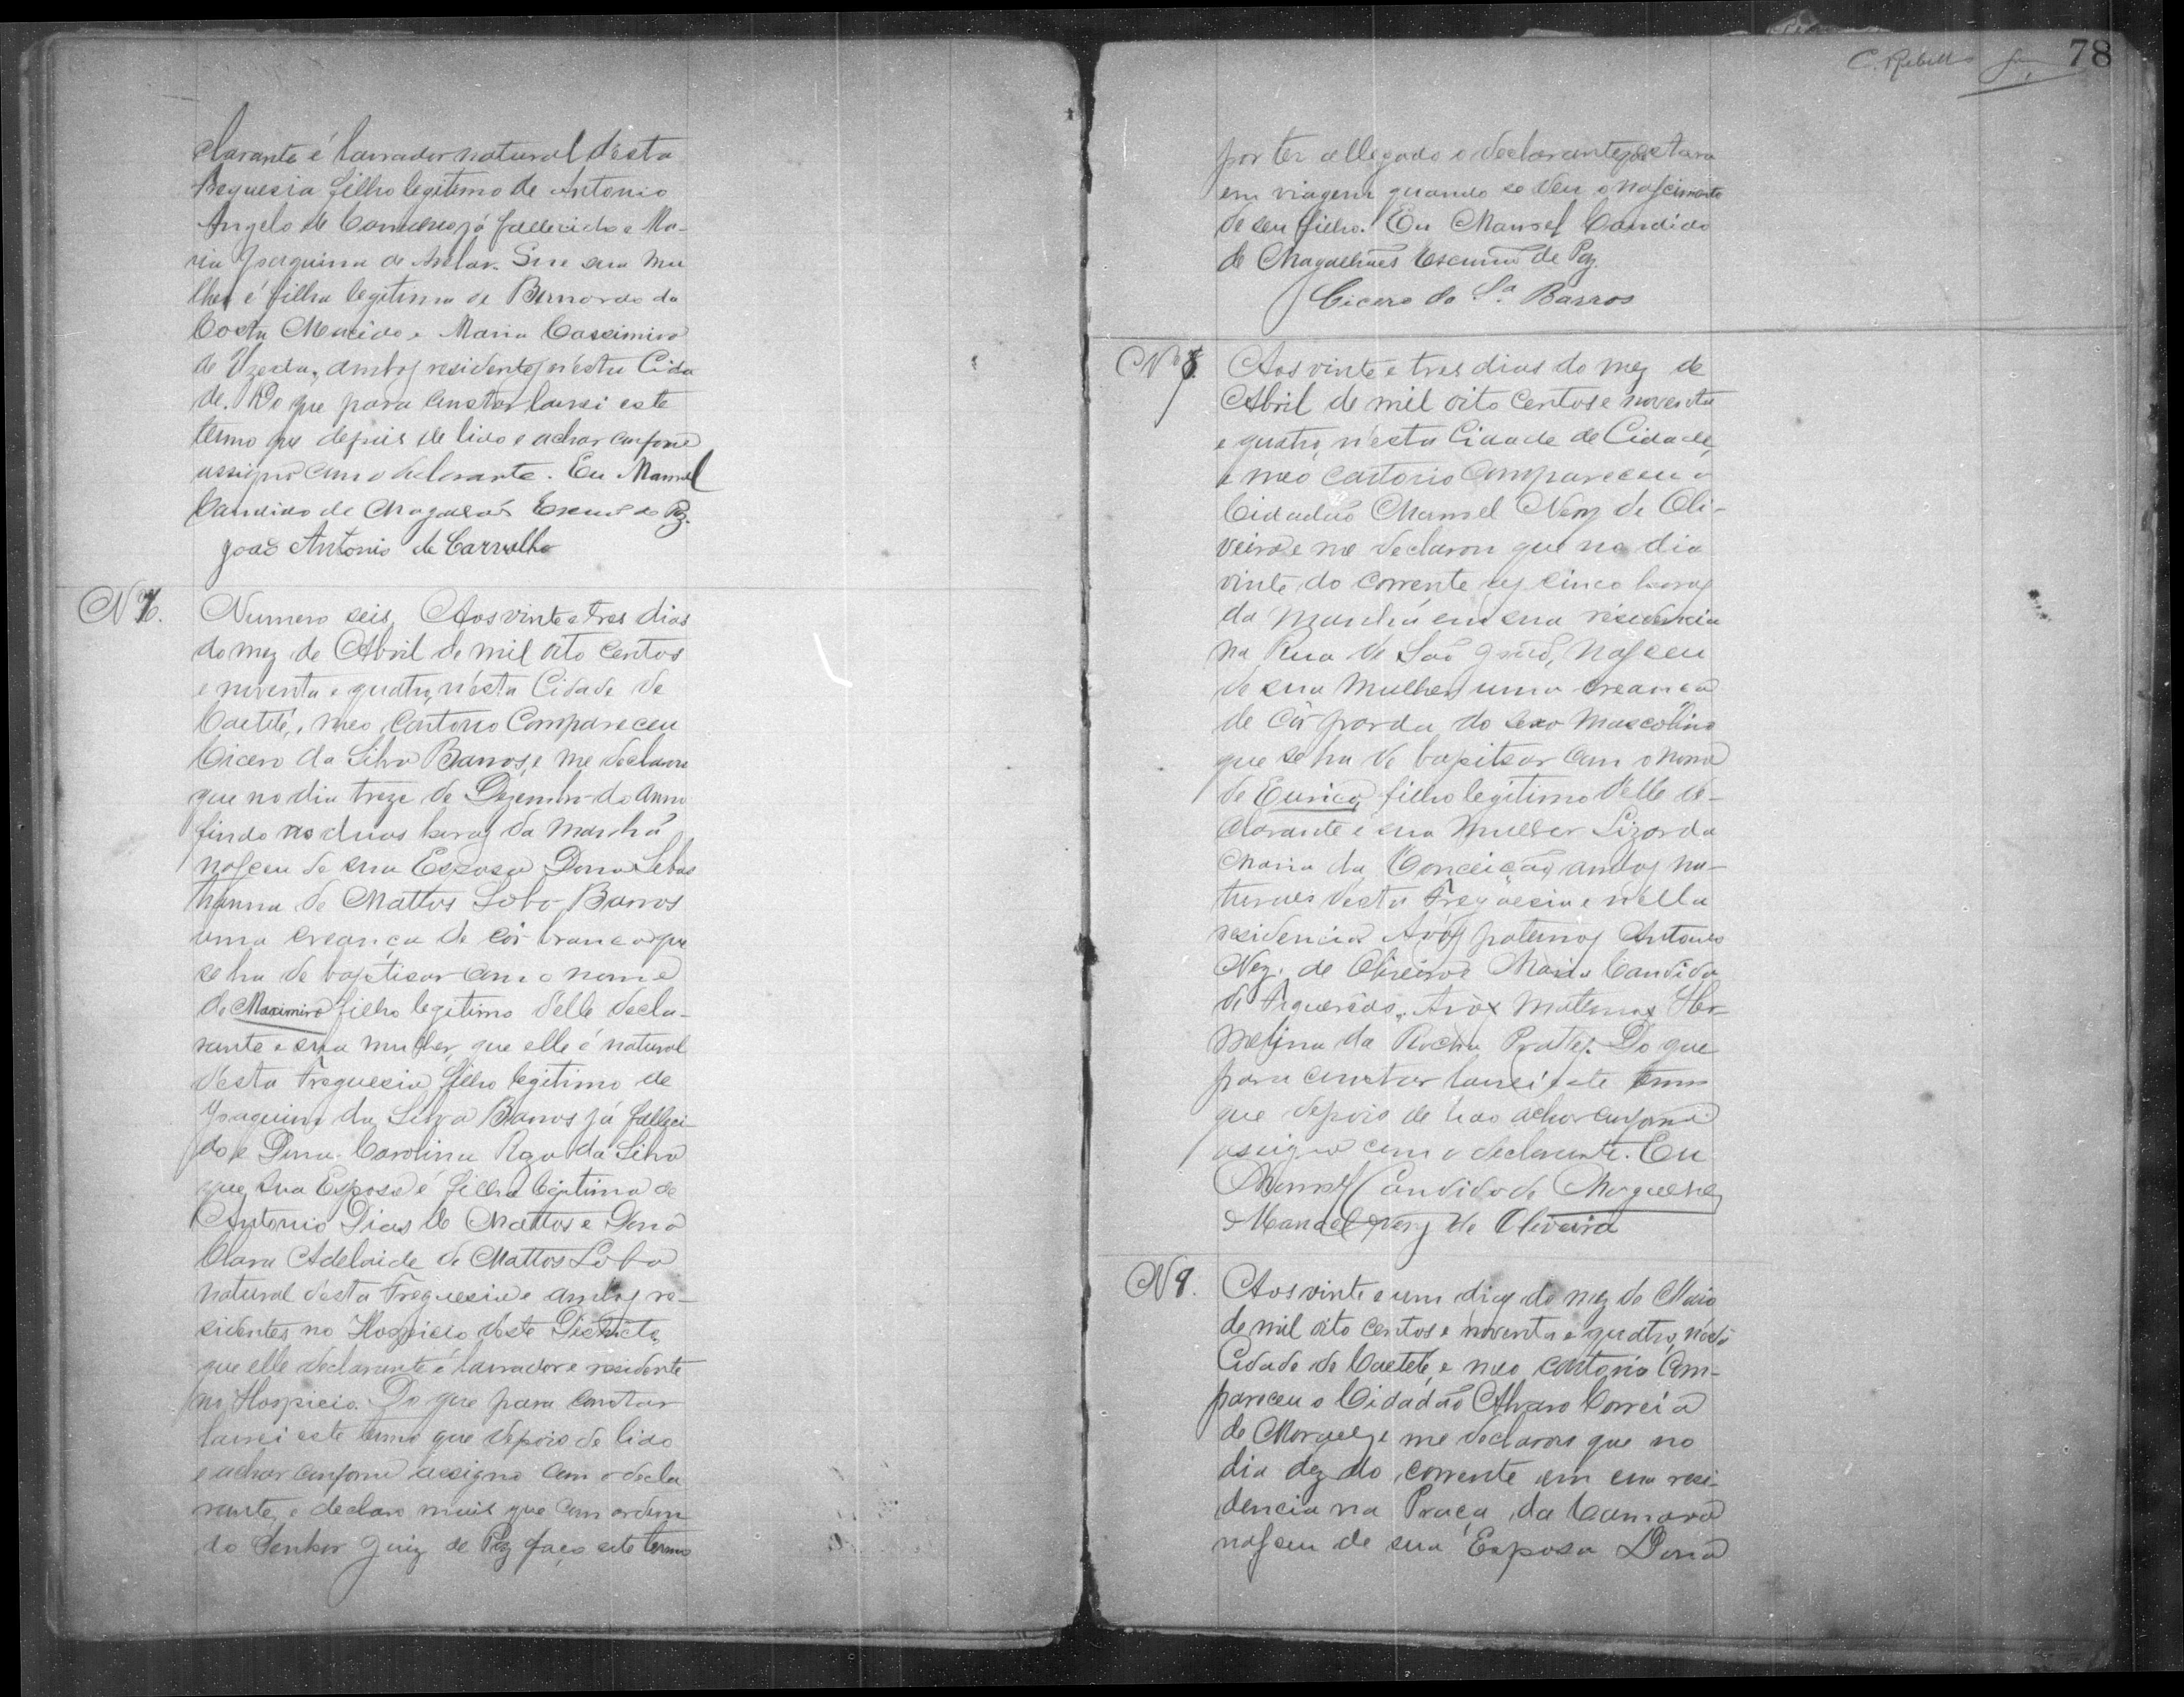 clarante é lavrador natural desta
Freguesia filho legitimo de Antonio
Angelo de Carvalho já fallecido e Ma-
ria Joaquina de Que sua mu
lher é filha legitima de Bernardo da
Costa Macêdo e Maria Cassimira
de Uzeda, ambos residentes n'esta Cida
de. Do que para constar lavrei este
termo que depois de lido e achar conforme
assigno com o declarante. Eu Manoel
Candido de Magalhães Escrivão de Paz.
João Antonio de Carvalho
N 7. Numero seis, Aos vinte e tres dias
do mez de Abril de mil oito centos
e noventa e quatro, n'esta Cidade de
Caeteté, meo Cartorio Compareceu
Cicero da Silva Barros, e me declarou
que no dia treze de Dezembro do anno
findo as duas horas da manhã
nasceu de sua Esposa Dona Sebas
tianna de Mattos Lobo Barros
uma creança de côr branca que
se ha de baptisar com o nome
de Maximiro filho legitimo delle decla-
rante e sua mulher, que elle é natural
desta Freguesia, filho legitimo de
Joaquim da Silva Barros já falleci-
do e Dona Carolina da Silva
que sua Esposa é filha legitima de
Antonio Dias de Mattos e Dona
Clara Adelaide de Mattos Lobo
natural desta Freguesia e ambos re-
sidentes no Hospicio deste Districto,
que elle declarante é lavrador e residente
no Hospicio. Do que para constar
lavrei este termo que depois de lido
e achar conforme assigno com o decla
rante, e declaro mais que com ordem
do Senhor Juiz de Paz faço este termo
C. Rebello 78
por ter allegado o declarante que estava
em viagem quando se deu o nascimento
de seu filho. Eu Manoel Candido
de Magalhães Escrivão de Paz.
Cicero da Sª Barros
Nº 8. Aos vinte e tres dias do mez de
Abril de mil oito centos e noventa
e quatro, n'esta Cidade de Cidade,
e meo Cartorio Compareceu o
Cidadão Manoel Nery de Oli-
veira e me declarou que no dia
vinte do corrente as cinco horas
da manhã em sua residencia
na Rua de São João, nasceu
de sua mulher uma creança
de côr parda do sexo Mascolino
que se ha de bapitsar com o nome
de Eurico, filho legitimo delle de-
clarante e sua mulher Lizarda
Maria da Conceição, ambos na-
turaes desta Freguesia e nella
residencia Avós paternos Antonio
Nery de Oliveira e Maria Candida
de Figuerêdo, Avós Maternos Her-
melina da Rocha Prates. Do que
para constar lavrei este termo
que depois de lido achar conforme
assigno com o declarante. Eu
Manoel Candido de Magalhães
Manoel Nery de Oliveira
N 9. Aos vinte e um dias do mez de Maio
de mil oito centos e noventa e quatro, nésta
Cidade de Caeteté, e meo cartorio Com-
pareceu o Cidadão Alvaro Correia
de Moraes, e me declarou que no
dia dez do corrente em sua resi-
dencia na Praça da Camara
nasceu de sua Esposa Dona